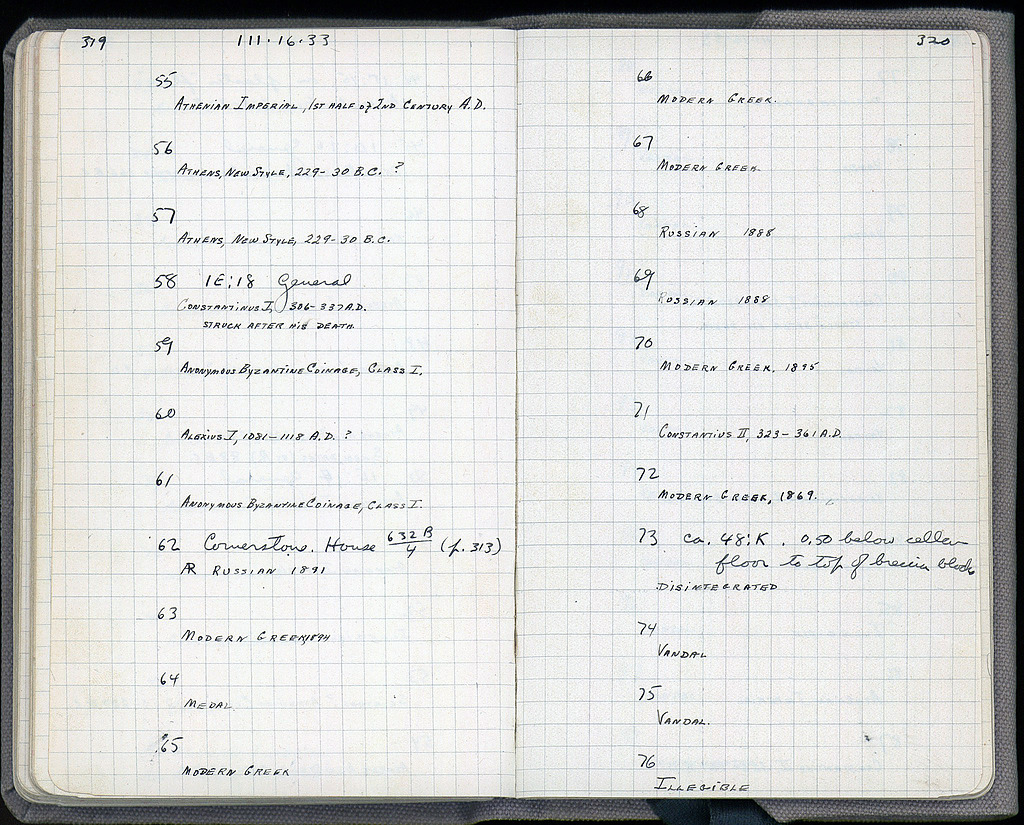 319
111·16·33
55
ATHENIAN IMPERIAL, 1ST HALF of 2ND CENTURY A.D.
56
ATHENS, NEW STYLE, 229-30 B.C. ?
57
ATHENS, NEW STYLE, 229-30 B.C.
58 IE:18 General
CONSTANTINUS I, 306-337 A.D.
STRUCK AFTER HIS DEATH.
59
ANONYMOUS BYZANTINE COINAGE, CLASS I.
60
ALEXIUS I, 1081-1118 A.D. ?
61
ANONYMOUS BYZANTINE COINAGE, CLASS I.
62 Cornerstone. House 632B/4 (p. 313)
AR RUSSIAN 1891
63
MODERN GREEK, 1894
64
MEDAL
65
MODERN GREEK
320
66
MODERN GREEK.
67
MODERN GREEK
68
RUSSIAN 1888
69
RUSSIAN 1888
70
MODERN GREEK, 1895
71
CONSTANTIUS II, 323-361 A.D.
72
MODERN GREEK, 1869.
73 ca. 48:K . 0.50 below cellar
floor to top of breccia block
DISINTEGRATED
74
VANDAL
75
VANDAL.
76
ILLEGIBLE